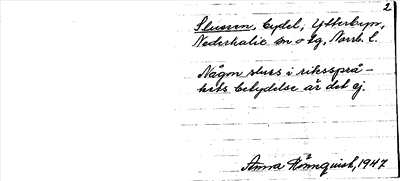 2
Slussen, bydel, Ytterbyn,
Nederkalix sn o tg, Norrb. l.
Någon sluss i rikssprå-
kets betydelse är det ej.
Anna Rönnquist, 1947